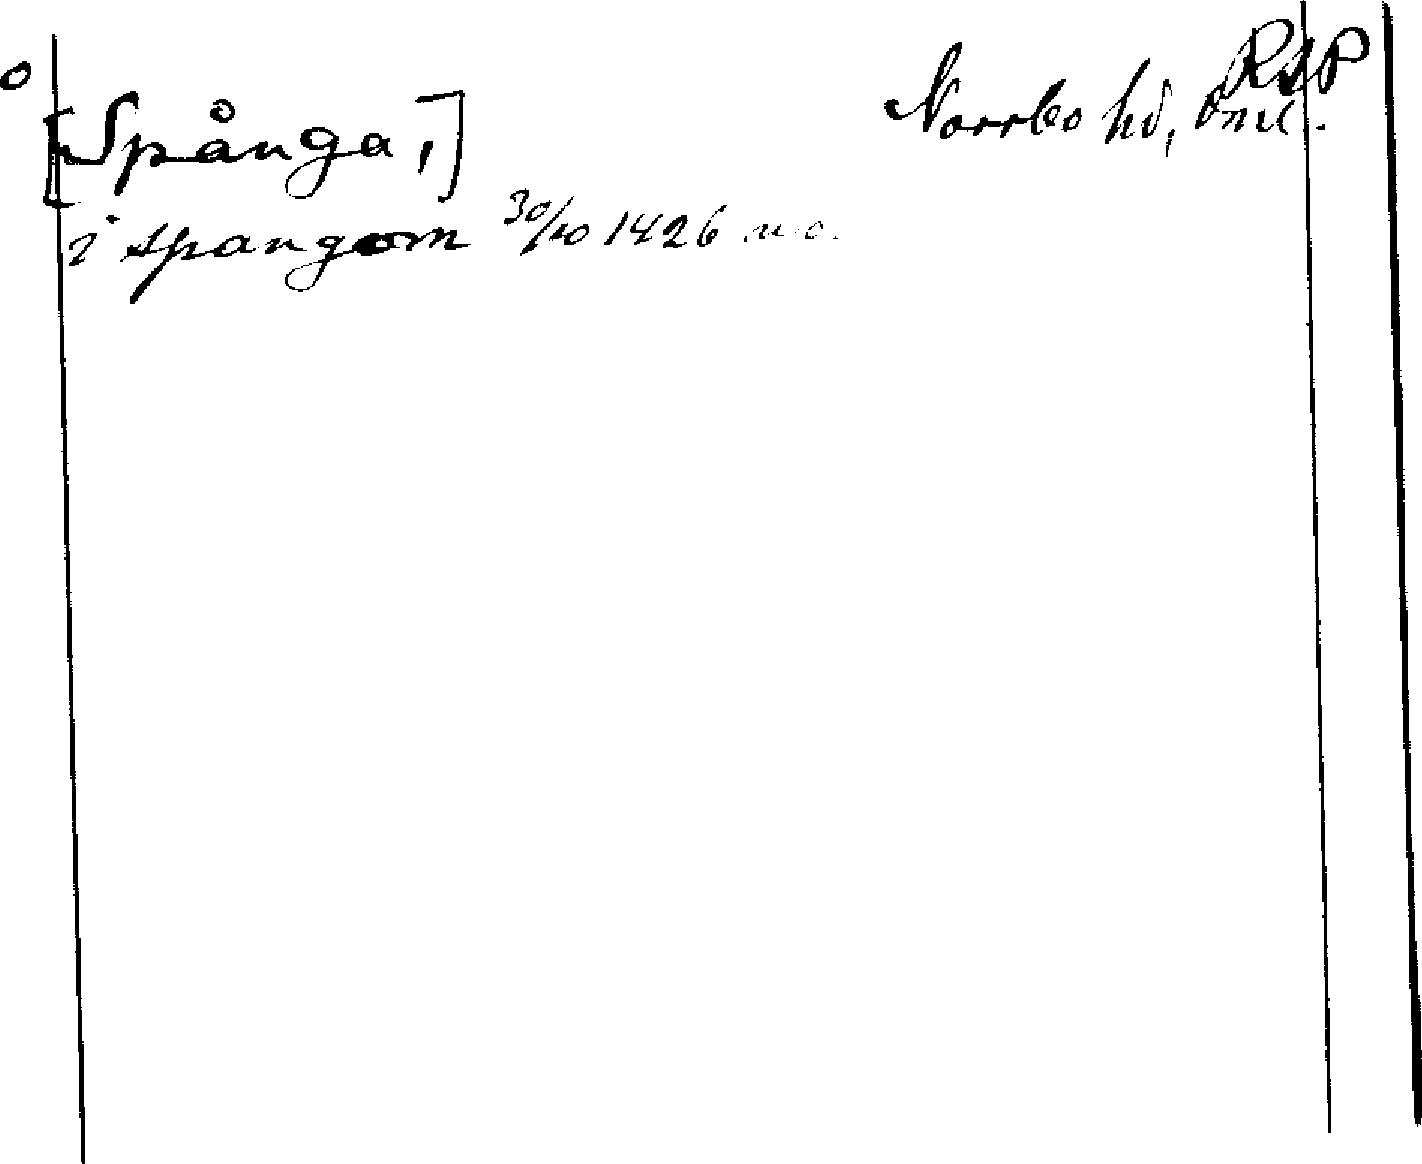 RAP
[Spånga,] Norrbo hd,
i spangom 30/10 1426